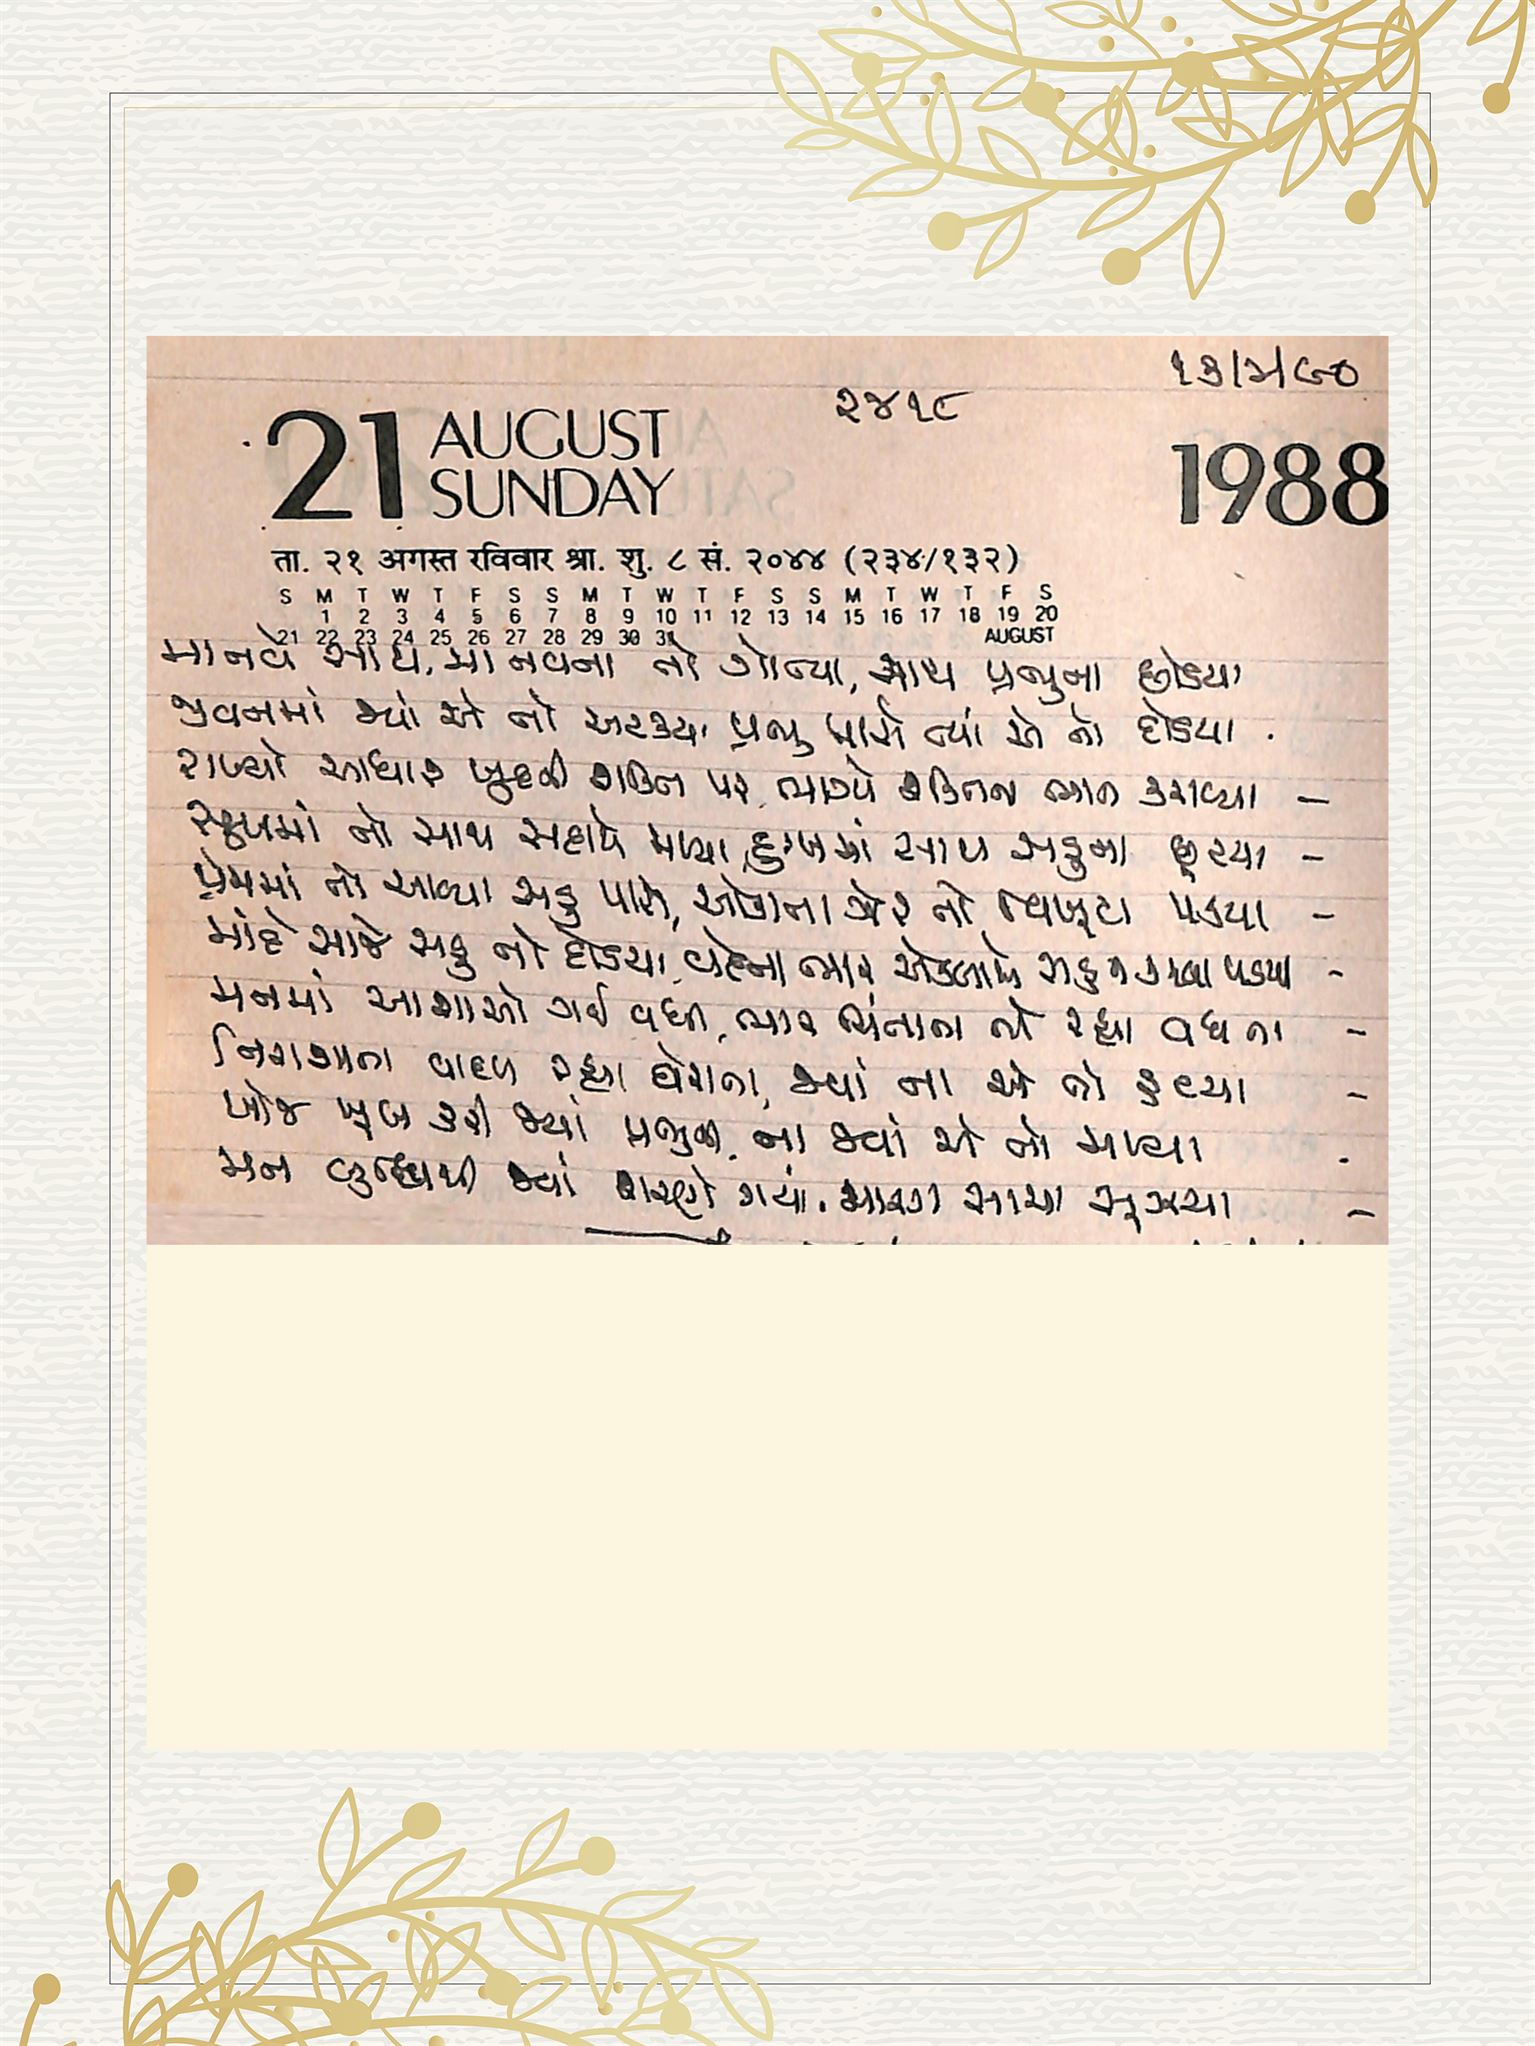 ૧૩/૪/૯૦
૨૪૧૮
21 AUGUST SUNDAY 1988
ता. २१ अगस्त रविवार श्रा. शु. ८ सं. २०४४ (२३४/१३२)
S M T W T F S S M T W T F S S M T W T F S
1 2 3 4 5 6 7 8 9 10 11 12 13 14 15 16 17 18 19 20
21 22 23 24 25 26 27 28 29 30 31 AUGUST
માનવે સાથ, માનવના તો ગોત્યા, સાથ પ્રભુના છોડયા
જીવનમાં જ્યાં એ તો અટકયા પ્રભુ પાસે ત્યાં એ તો દોડયા .
રાખ્યો આધાર ખુદની શક્તિ પર, ભાગ્યે શક્તિના ભાન કરાવ્યા –
સુખમાં તો સાથ સહાયે મળ્યા, દુઃખમાં સાથ સહુના છૂટયા –
પ્રેમમાં તો આવ્યા સહુ પાસે, વેરે તો વિખૂટા પડયા –
માંદે સાજે સહુ તો દોડયા, ભાર એકલાએ સહન કરવા પડયા –
મનમાં આશાઓ ગઈ વધી, ભાર ચિંતાના તો રહ્યા વધતા –
નિરાશાના વાદળ રહ્યા ઘેરાતા, જ્યાં ના એ તો ફળ્યા –
ખોજ ખૂબ કરી જ્યાં પ્રભુની, ના જ્યાં એ તો મળ્યા .
મન બુદ્ધિથી જ્યાં શરણે ગયાં, મારગ સાચા સૂઝયા –